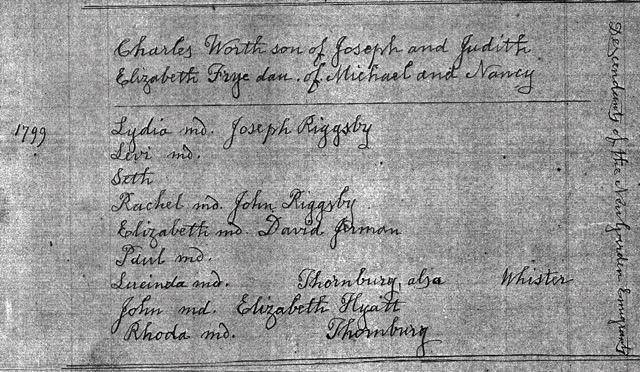 Charles Worth son of Joseph and Judith
Elizabeth Frye dau. of Michael and Nancy
1799
Lydia md. Joseph Riggsby
Levi md.
Seth
Rachel md. John Riggsby
Elizabeth md. David Jerman
Paul md.
Lucinda md. Thornburg, also Whister
John md. Elizabeth Hyatt
Rhoda md. Thornburg
Descendants of the New Garden Emigrants